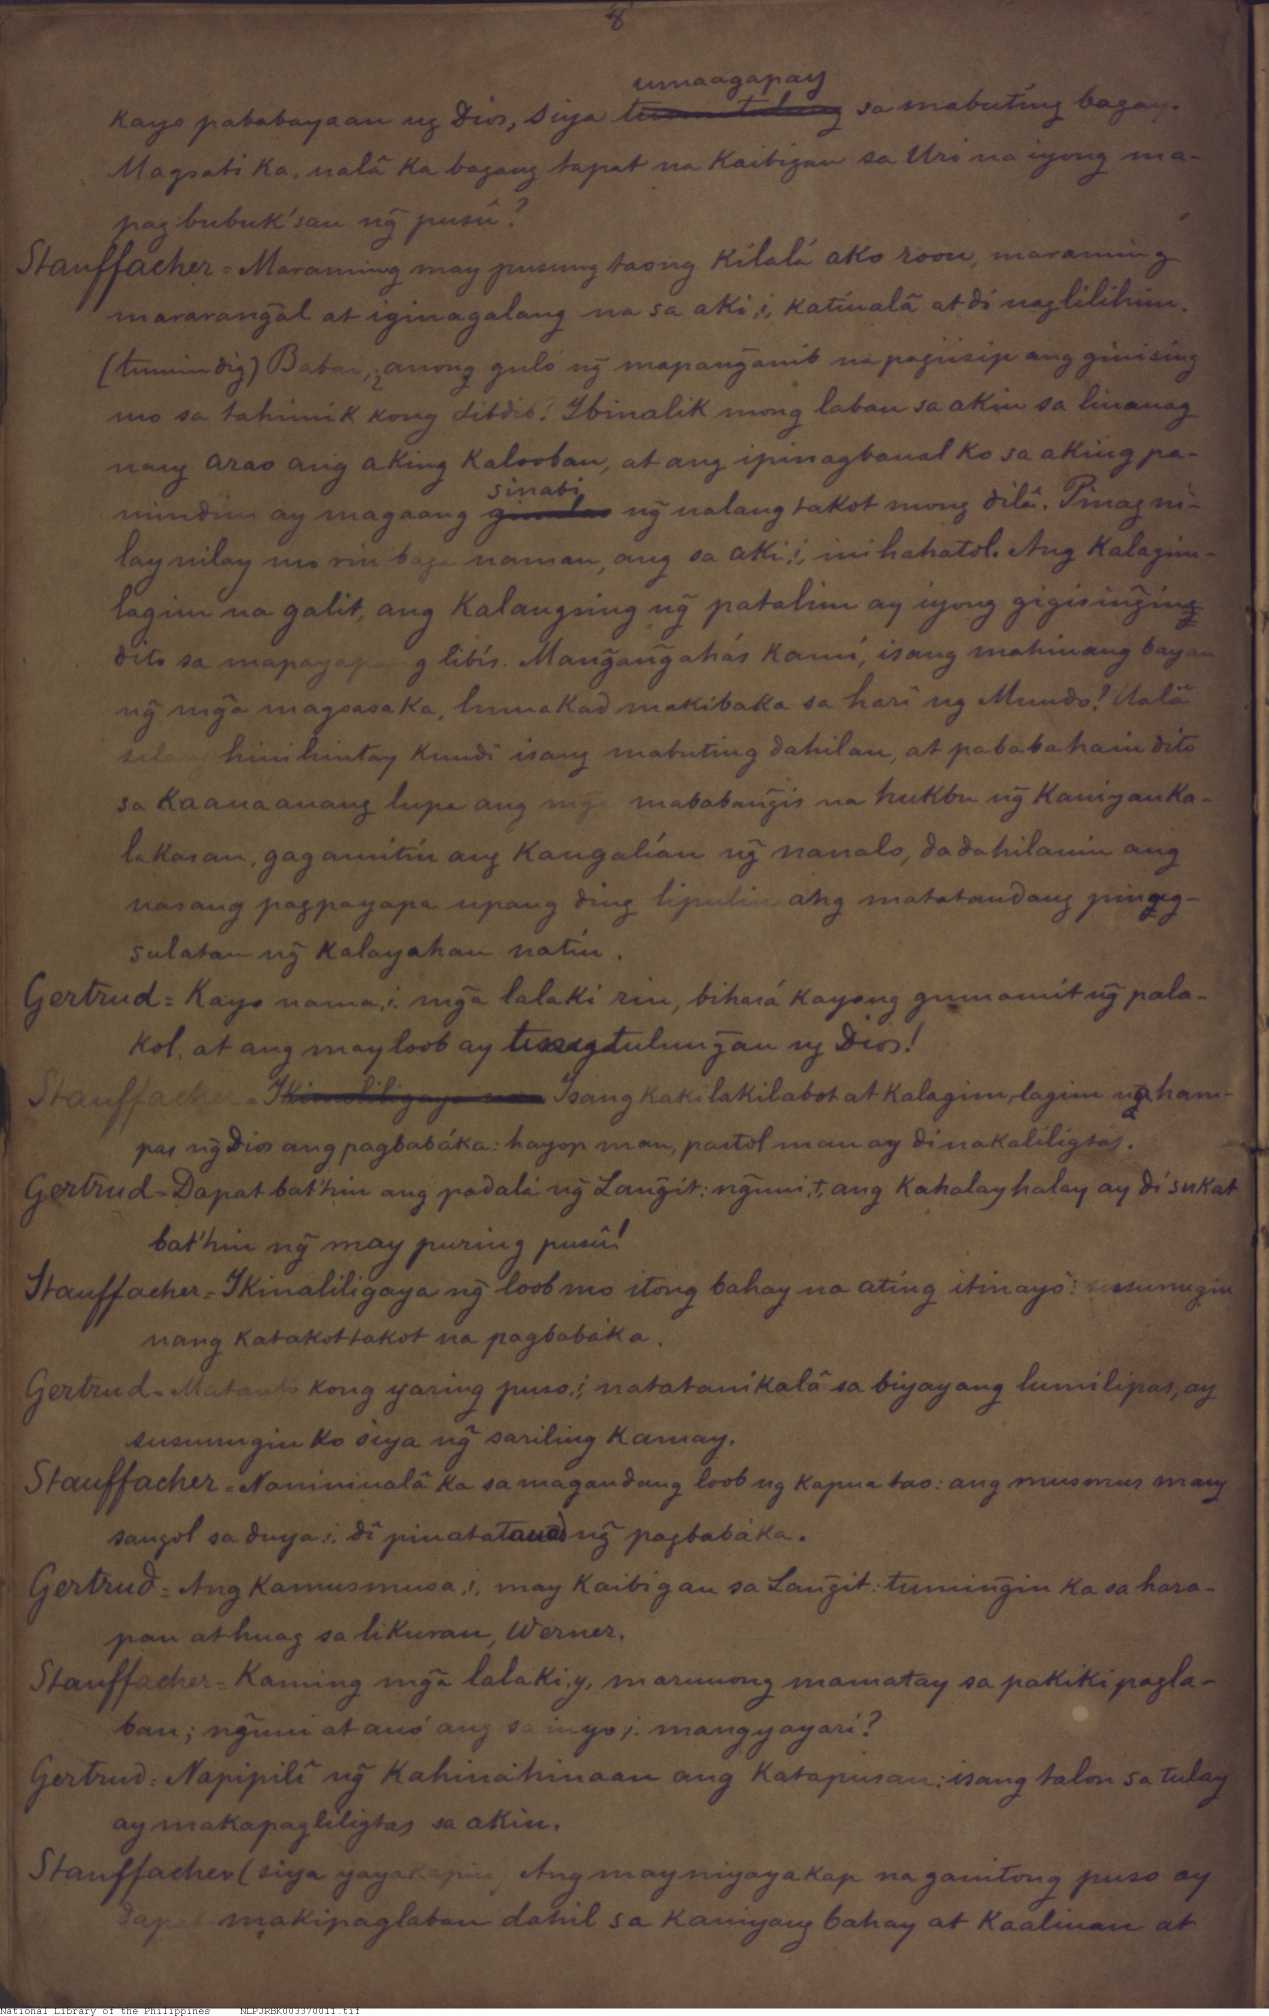 8
umaagapay
kayo pababayaan ng Dios, siya tumutulung sa mabuting bagay.
Magsabi ka, ualâ ka bagang tapat na kaibigan sa Uri na iyong ma-
pagbubuk'san ng̃ pusû?
Stauffacher = Maraming may pusung taong kilalá ako roon, maraming
mararang̃al at iginagalang na sa aki,i, katiualâ at di naglilihim.
(tumindig) Babai, ¿anong guló ng̃ mapang̃anib na pagiisip ang ginising
mo sa tahimik kong dibdib? Ibinalik mong laban sa akin sa linanag
nang arao ang aking kalooban, at ang ipinagbaual ko sa aking pa-
sinabi
mindim ay magaang ng̃ ualang takot mong dilâ. Pinagni-
laynilay mo rin baga naman, ang sa aki,i, inihahatol. Ang kalagim-
lagim na galit, ang kalangsing ng̃ patalim ay iyong gigising̃ing
dito sa mapayapang libís. Mang̃ang̃ahás kamí, isang mahinang bayan
ng̃ mg̃a magsasaka, lumakad makibaka sa harî ng Mundo! Ualâ
silang hinihintay kundî isang mabuting dahilan, at pababahain dito
sa kaauaauang lupa ang mg̃a mababang̃is na hukbu ng̃ kaniyanka-
lakasan, gagamitin ang kangalían ng̃ nanalo, dadahilanin ang
nasang pagpayapa upang ding lipulin ang matatandang pinag-
sulatan ng̃ kalayahan natin.
Gertrud = Kayo nama,i. mg̃a lalaki rin, bihasá kayong gumamit ng̃ pala-
kol, at ang may loob ay tinutulung̃an ng Dios!
Stauffacher = Ikinaliligaya Isang kakilakilabot at kalagim-lagim na ham-
pas ng̃ Dios ang pagbabáka: hayop man, pastol man ay di nakaliligtás.
Gertrud = Dapat bat'hin ang padalá ng̃ Lang̃it: ng̃uni,t, ang kahalayhalay ay dí sukat
bat'hin ng̃ may puring pusû!
Stauffacher = Ikinaliligaya ng̃ loob mo itong bahay na ating itinayô: susunugin
nang katakottakot na pagbabáka.
Gertrud = Matantô kong yaring puso,i, natatanikalâ sa biyayang lumilipas, ay
susunugin ko siya ng̃ sariling kamay.
Stauffacher = Naniniualâ ka sa magandang loob ng kapua tao: ang musmus may
sangol sa duya,i. dî pinatatauad ng̃ pagbabáka.
Gertrud = Ang kamusmusa,i. may kaibigan sa Lang̃it: tuming̃in ka sa hara-
pan at huag sa likuran, Werner.
Stauffacher = Kaming mg̃a lalaki,y, marunong mamatay sa pakikipagla-
ban; ng̃uni at anó ang sa inyo,i. mangyayari?
Gertrud = Napipilî ng̃ kahinahinaan ang katapusan: isang talon sa tulay
ay makapagliligtas sa akin.
Stauffacher (siya yayakapin) Ang may niyayakap na ganitong puso ay
dapat makipaglaban dahil sa kaniyang bahay at kaalinan at
National Library of the Philippines NLPJRBK003370011.tif